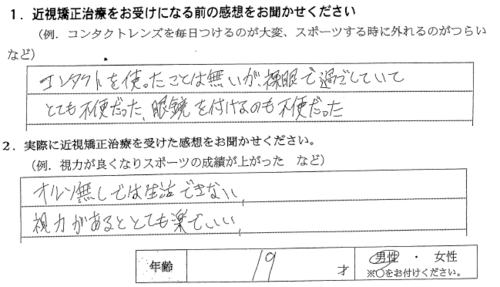 1．近視矯正治療をお受けになる前の感想をお聞かせください
（例．コンタクトレンズを毎日つけるのが大変、スポーツする時に外れるのがつらい
など）
コンタクトを使ったことは無いが、裸眼で過ごしていて
とても不便だった、眼鏡を付けるのも不便だった
2．実際に近視矯正治療を受けた感想をお聞かせください。
（例．視力が良くなりスポーツの成績が上がった　など）
オルソ無しでは生活できない、
視力があるととても楽でいい、
年齢　19　才　男性　・　女性
※○をお付けください。